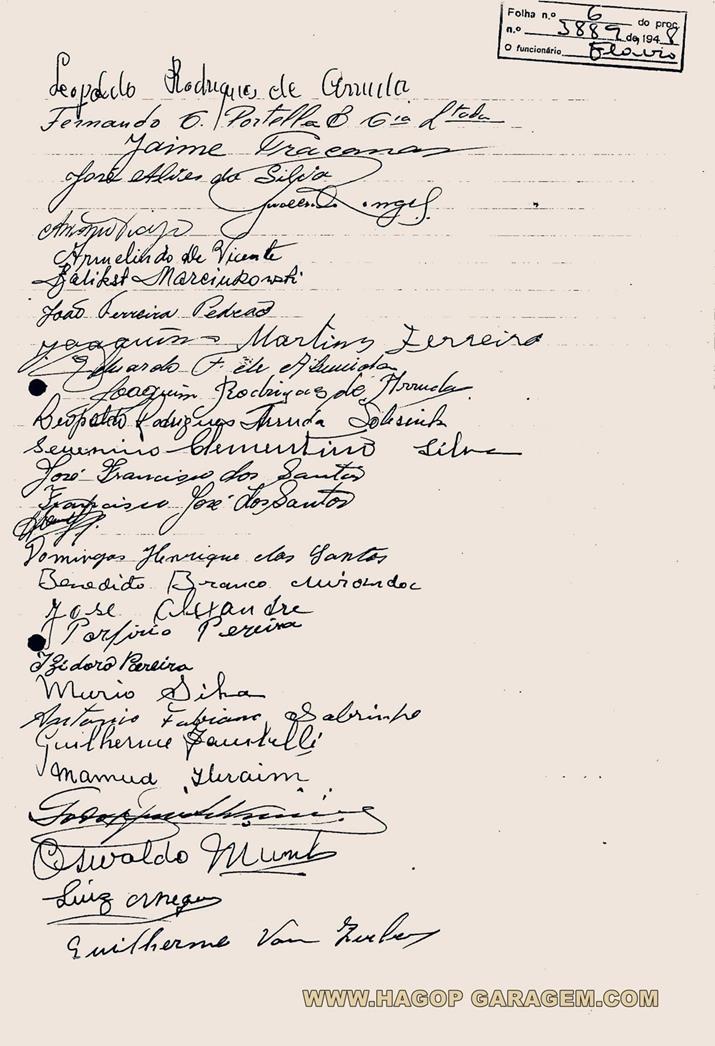 Folha n.º 6 do proc.
n.º 3889 de 1948
O funcionário Flavio
Leopoldo Rodrigues de Arruda
Fernando G. Portella & Cia Ltada
Jaime
José Alves da Silva
Rangel
Armelindo De Vicente
Kalikst Marcinkowski
João Ferreira Pedrão
Joaquim Martins Ferreira
Eduardo F. de Almeida
Joaquim Rodrigues de Arruda
Leopoldo Rodrigues Arruda Sobrinho
Severino Clementino Silva
José Francisco dos Santos
Francisco José dos Santos
Domingos Henrique dos Santos
Benedito Branco Miranda
José Alexandre
Porfirio Pereira
Izidoro Pereira
Murio Silva
Antonio Fabiano Sobrinho
Guilherme
Mamud Ibraim
Oswaldo
Luiz
Guilherme Von
WWW.HAGOP GARAGEM.COM